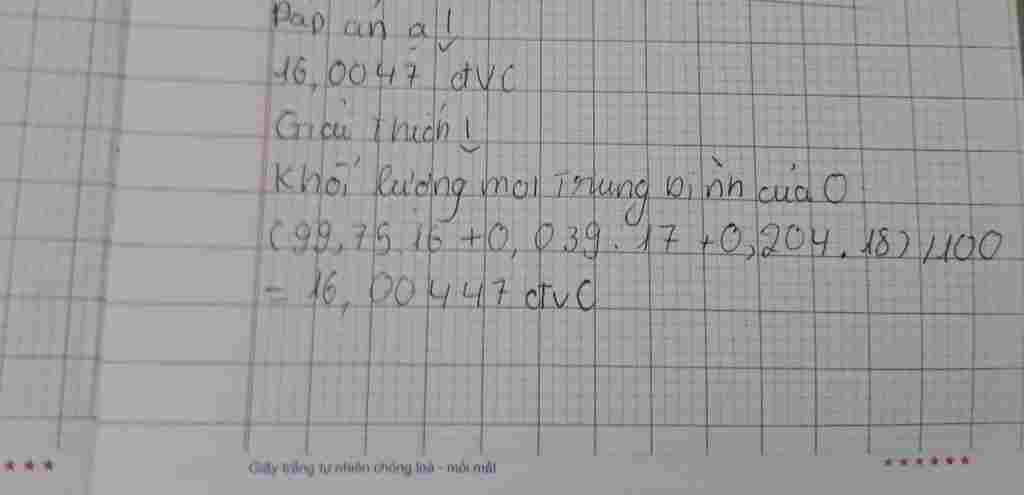 Đáp án a!
16,0047 đvC
Giải thích!
Khối lượng mol trung bình của O
(99,75.16 +0,039.17 +0,204.18)/100
= 16,00447 đvC
Giấy trắng tự nhiên chống loá - mỏi mắt